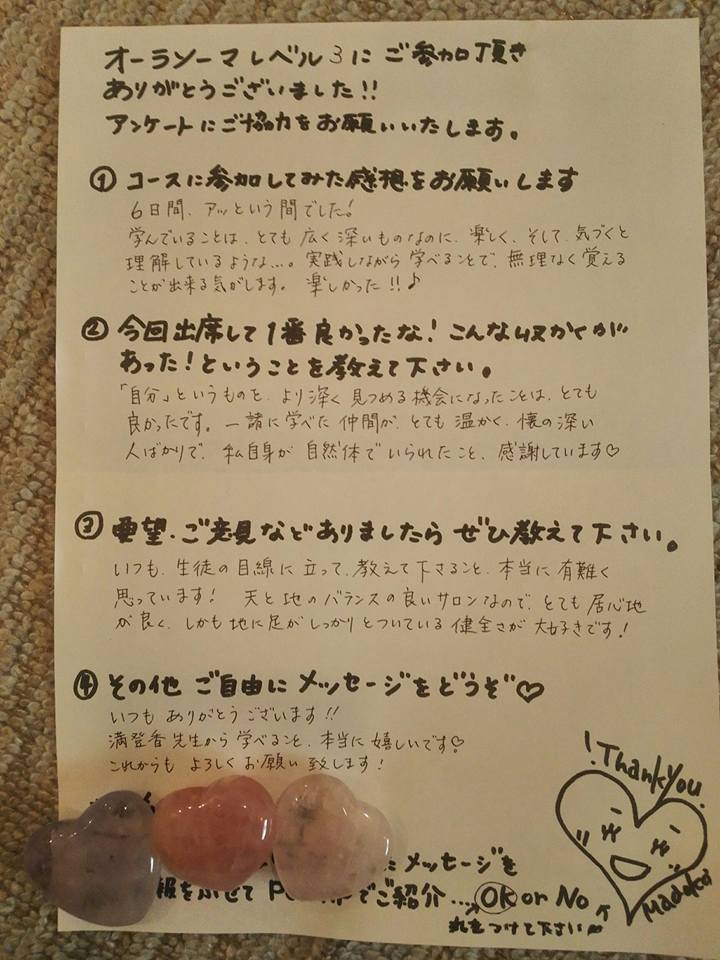 オーラソーマレベル3にご参加頂き
ありがとうございました!!
アンケートにご協力をお願いいたします。
① コースに参加してみた感想をお願いします
6日間、アッという間でした!
学んでいることは、とても広く深いものなのに、楽しく、そして、気づくと
理解しているような…。実践しながら学べることで、無理なく覚える
ことが出来る気がします。 楽しかった!!♪
② 今回出席して1番良かったな!こんな収かくが
あった!ということを教えて下さい。
「自分」というものを、より深く見つめる機会になったことは、とても
良かったです。一諸に学べた仲間が、とても温かく、懐の深い
人ばかりで、私自身が自然体でいられたこと、感謝しています♡
③ 要望、ご意見などありましたら ぜひ教えて下さい。
いつも、生徒の目線に立って、教えて下さること、本当に有難く
思っています! 天と地のバランスの良いサロンなので、とても居心地
が良く、しかも地に足がしっかりとついている健全さが大好きです!
④ その他 ご自由にメッセージをどうぞ♡
いつもありがとうございます!!
満登香先生から学べること、本当に嬉しいです♡
これからもよろしくお願い致します!
にメッセージを
報をふせて P でご紹介…OK or No
丸をつけて下さい
!Thank You!
Madoka